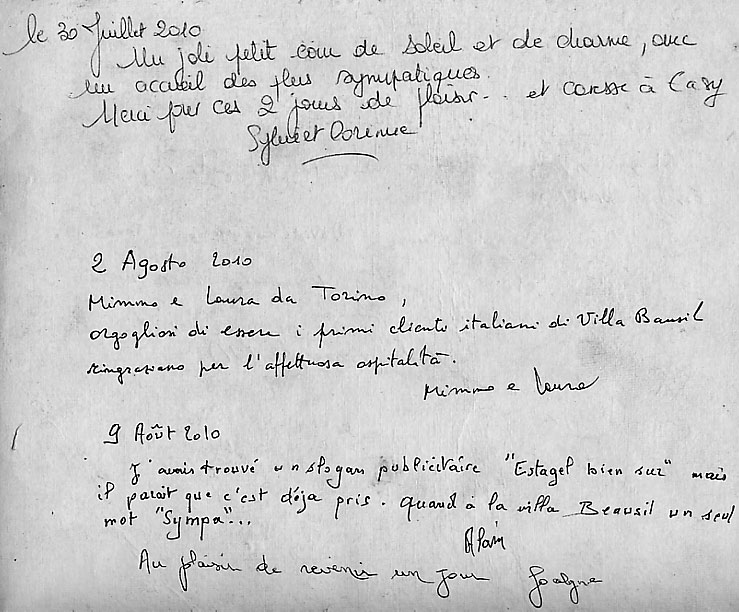 le 30 Juillet 2010
Un joli petit coin de soleil et de charme, avec
un accueil des plus sympatiques.
Merci pour ces 2 jours de plaisir... et caresse à Casy
Sylvie et
2 Agosto 2010
Mimmo e Laura da Torino,
orgogliosi di essere i primi clienti italiani di Villa Bausil
ringraziano per l'affettuosa ospitalità.
Mimmo e Laura
9 Août 2010
J'avais trouvé un slogan publicitaire "Estagel bien sur" mais
il parait que c'est déja pris. Quand à la villa Beausil un seul
mot "Sympa"...
Alain
Au plaisir de revenir un jour